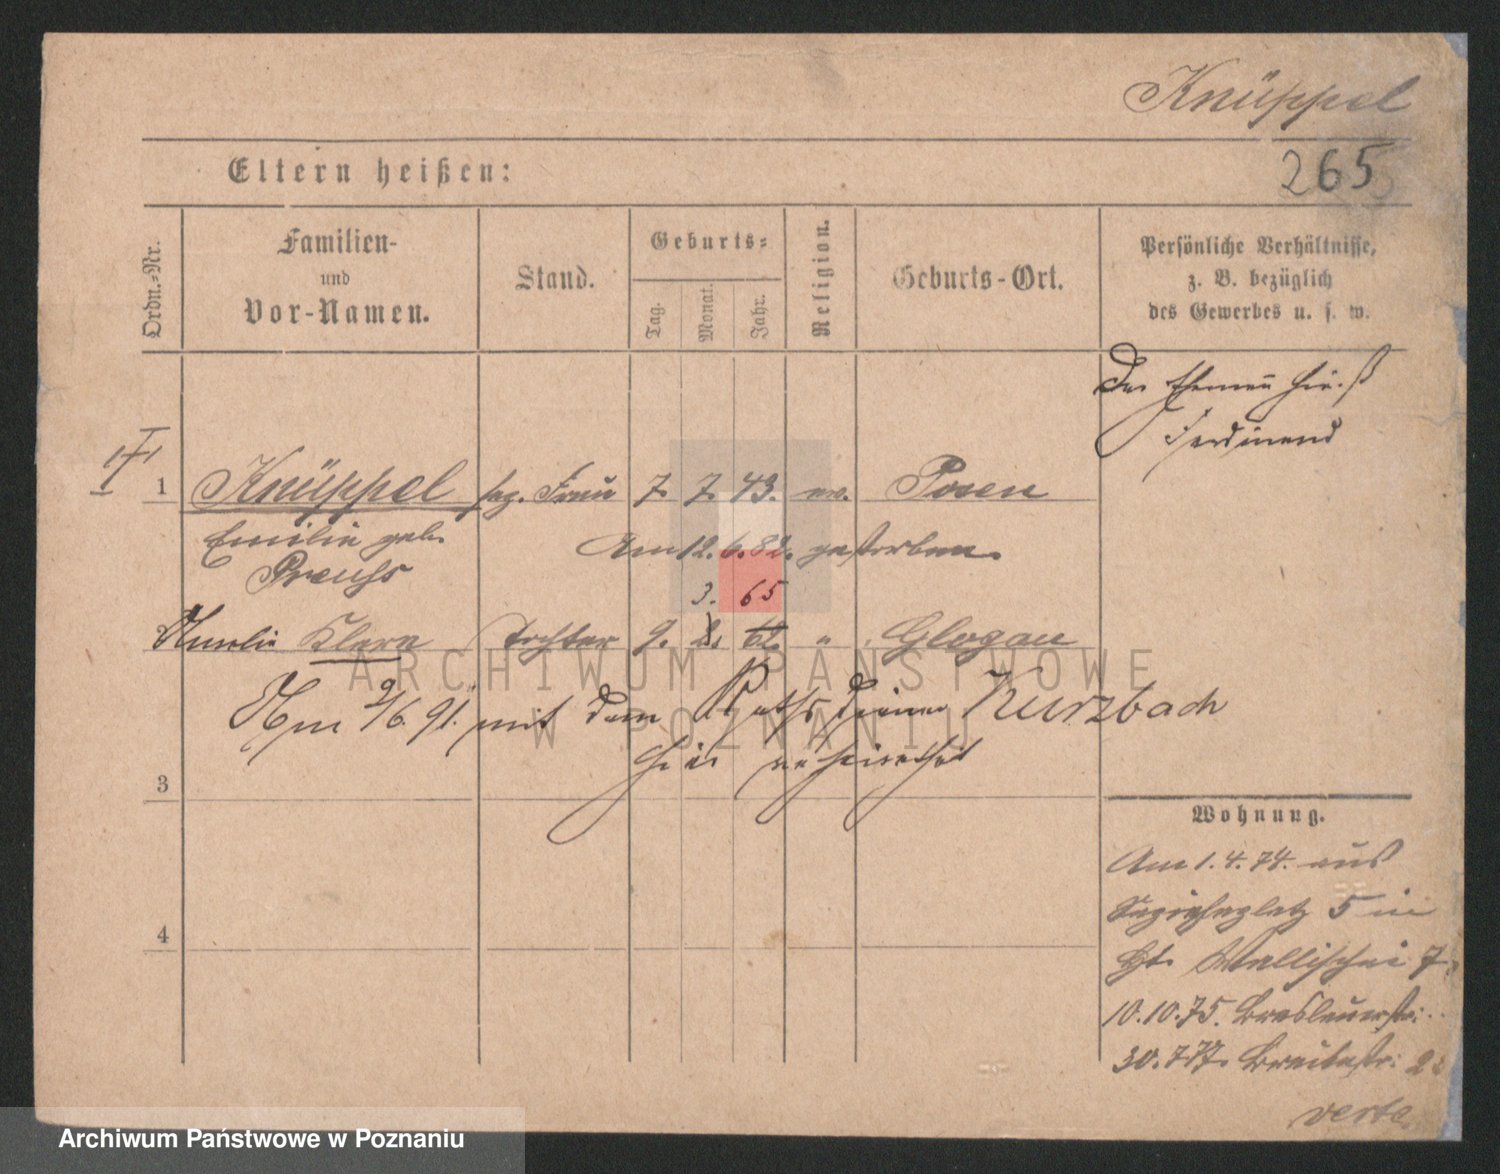 Knüppel
265
Eltern heißen:
Ordn.-Nr.
Familien-
und
Vor-Namen.
Stand.
Geburts-
Tag.
Monat.
Jahr.
Religion.
Geburts-Ort.
Persönliche Verhältnisse,
z. B. bezüglich
des Gewerbes u. s. w.
Der Ehemann hieß
Ferdinand
1 Knüppel sep. Frau 7. 7. 43. ev. Posen
Emilie geb.
Preuss
Am 12. 6. 82. gestorben.
3. 65
2 Amalie Klara Tochter 9. 2. 62. " Glogau
Am 9/6. 91. mit dem Rathsdiener Kurzbach
hier verheirathet
3
4
Wohnung.
Am 1. 4. 74. aus
Sapiehaplatz 5 in
Wallischei 7
10.10.75. Breslauerstr.
30.7.77. Breitestr. 22
verte
ARCHIWUM PAŃSTWOWE
W POZNANIU
Archiwum Państwowe w Poznaniu